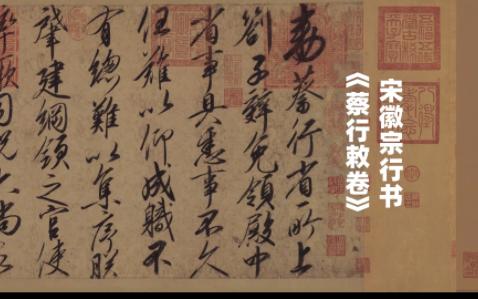 宋徽宗行书
《蔡行敕卷》
勅蔡行省所上
劄子辭免領殿中
省事具悉事不久
任難以仰成職不
有總難以集序朕
肇建綱領之官使